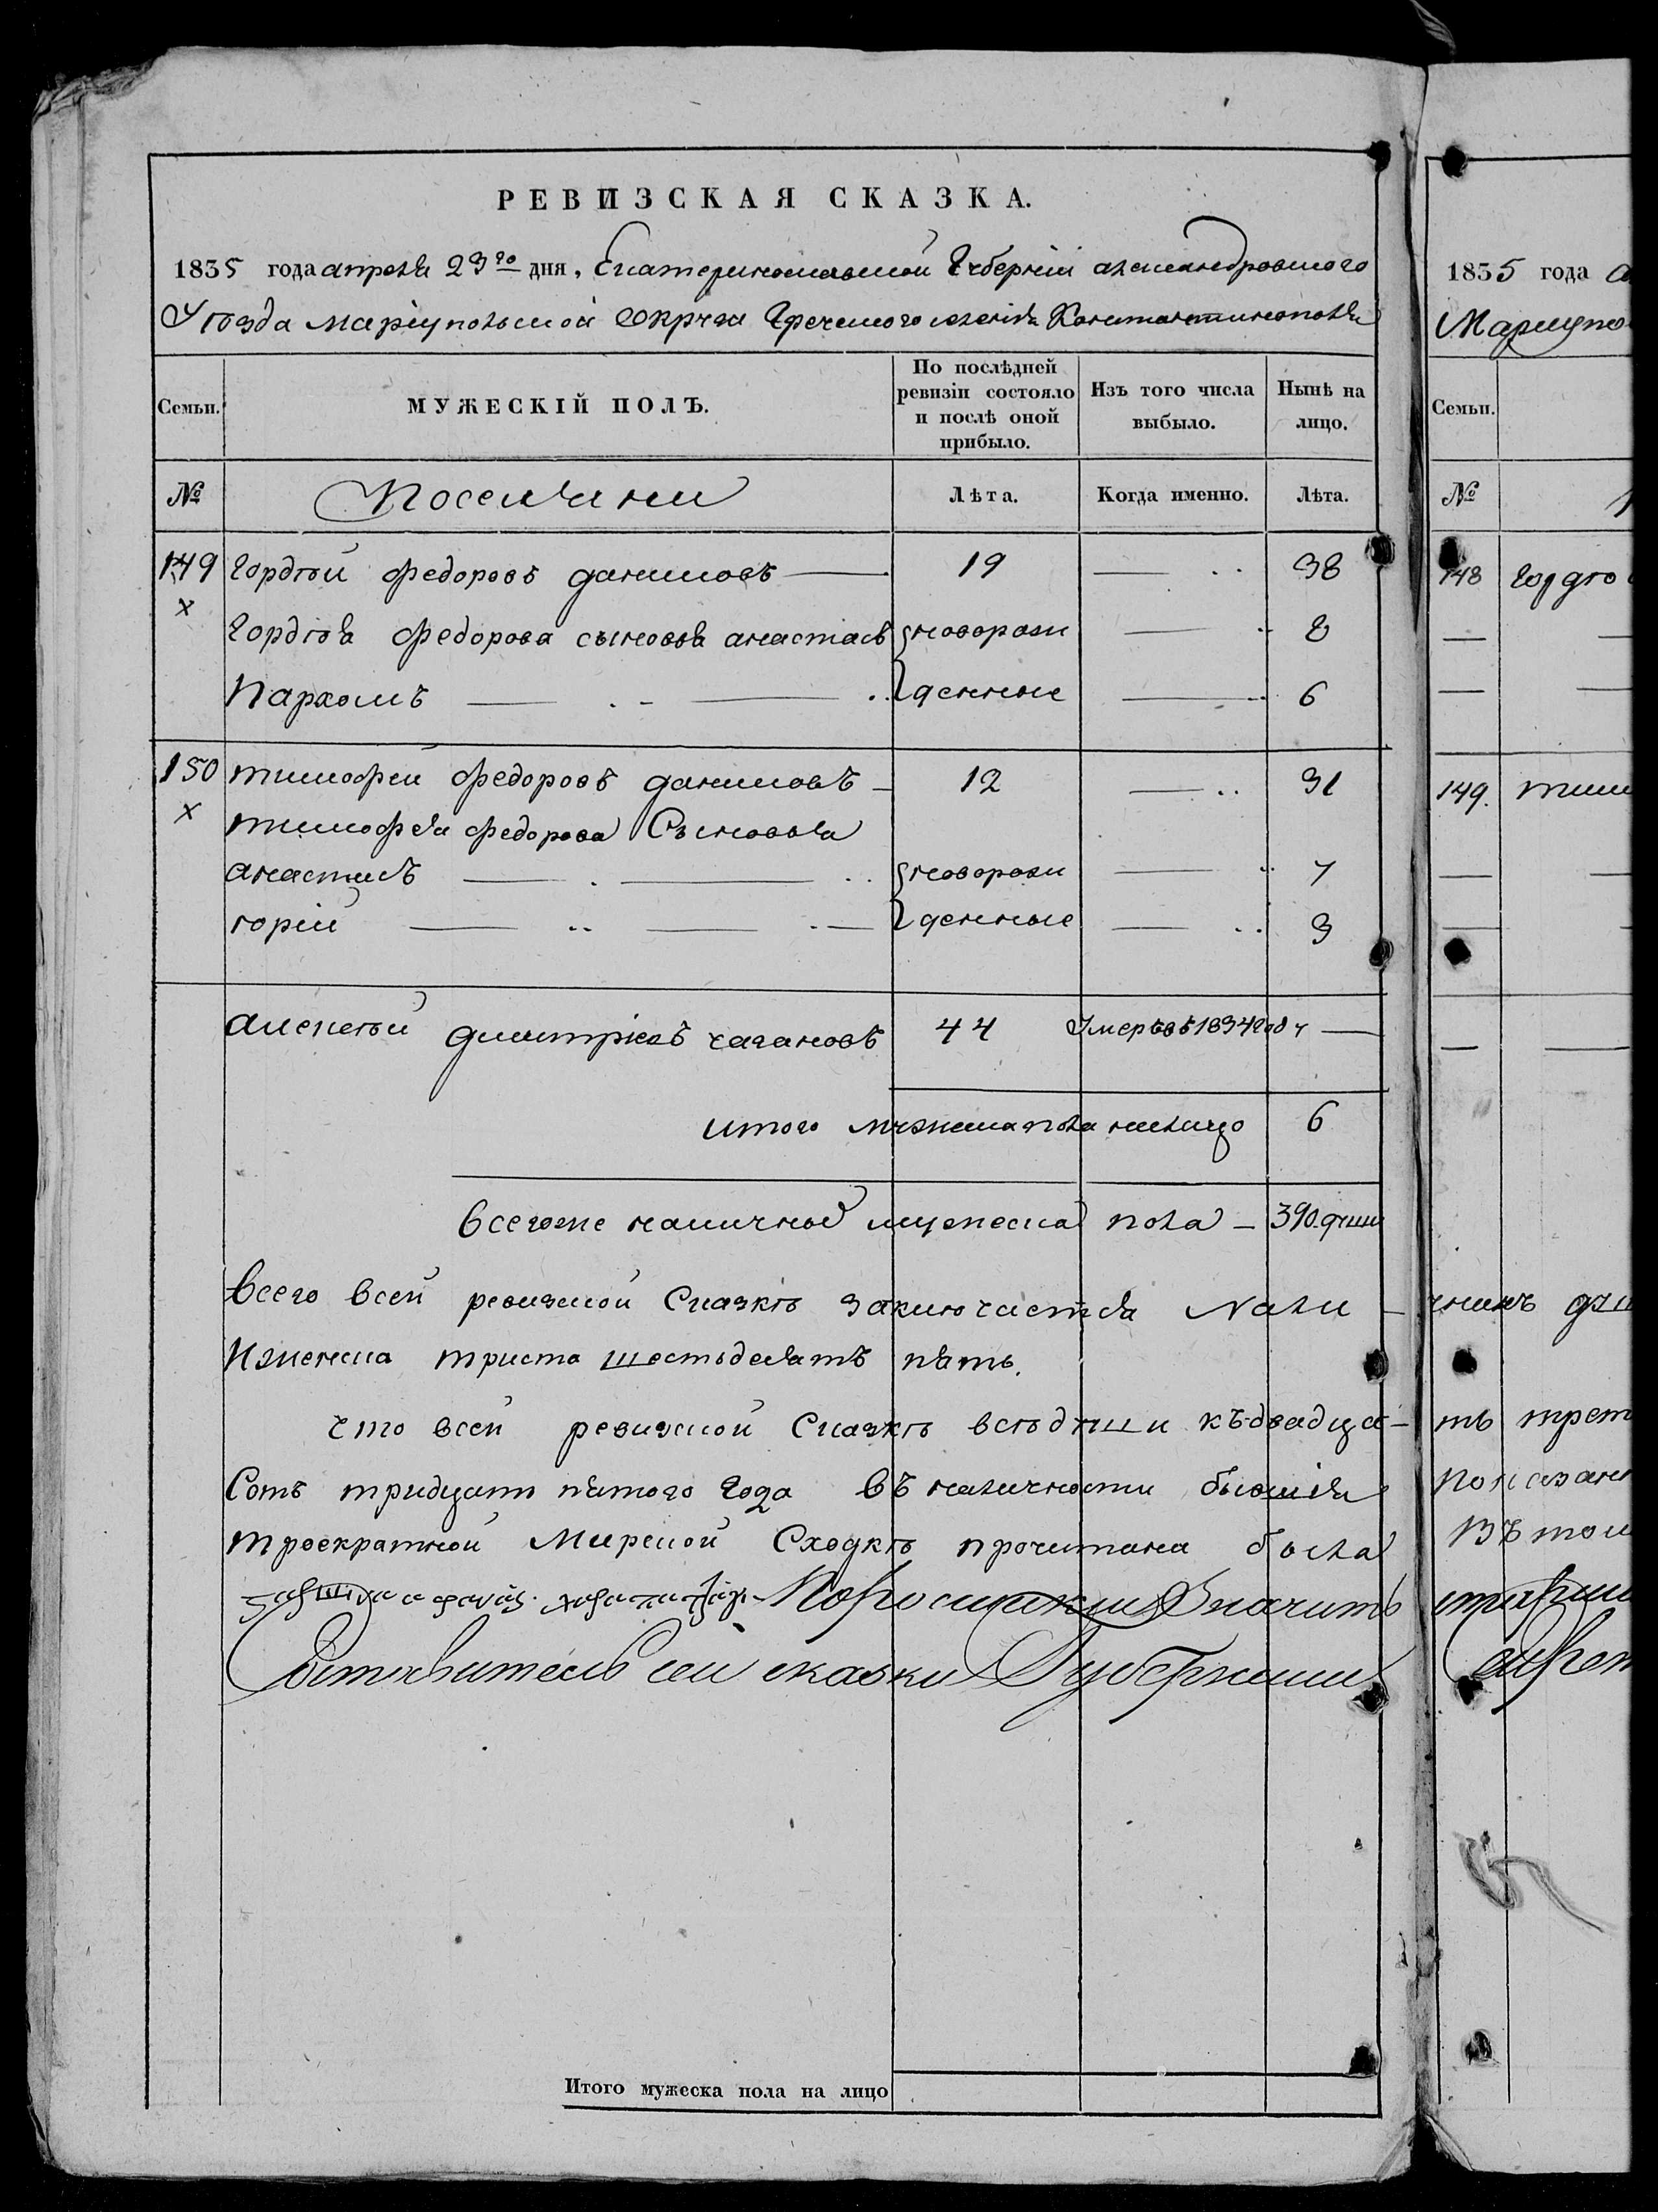 РЕВИЗСКАЯ СКАЗКА.
1835 года апреля 23го дня, Екатеринославской Губернии александровского
Уѣзда Мариупольской округи Греческого селения Константинополя
Семьи.
МУЖЕСКІЙ ПОЛЪ.
По послѣдней ревизіи состояло и послѣ оной прибыло.
Изъ того числа выбыло.
Нынѣ на лицо.
№ Поселяни Лѣта. Когда именно. Лѣта.
149 Гордѣй федоровъ даниловъ 19 38
х Гордѣя федорова сыновья анастасъ новорож 8
Пархомъ денные 6
150 тимофеи федоровъ даниловъ 12 31
х тимофея федорова Сыновья
анастасъ новорож 7
юрий денные 3
алексѣй дмитріевъ чагановъ 44 Умеръ въ 1834 году
итого мужеска пола налицо 6
всегоже наличнои мужеска пола 390 душъ
Всего всеи ревизской Сказкѣ заключается Нали-
Мженска триста шестьдесятъ пять.
что всеи ревизской Сказкѣ всѣ души къ двадца-
Сотъ тридцати пятого Года въ наличности бывшия
троекратной Мирской Сходкѣ прочитана была
значитъ
Составитель сеи сказки Губерниии
Итого мужеска пола на лицо
1835 года
Мариупо
Семьи.
№
148 Гордѣ
149. тим
чнихъ душ
ть трет
показан
Въ том